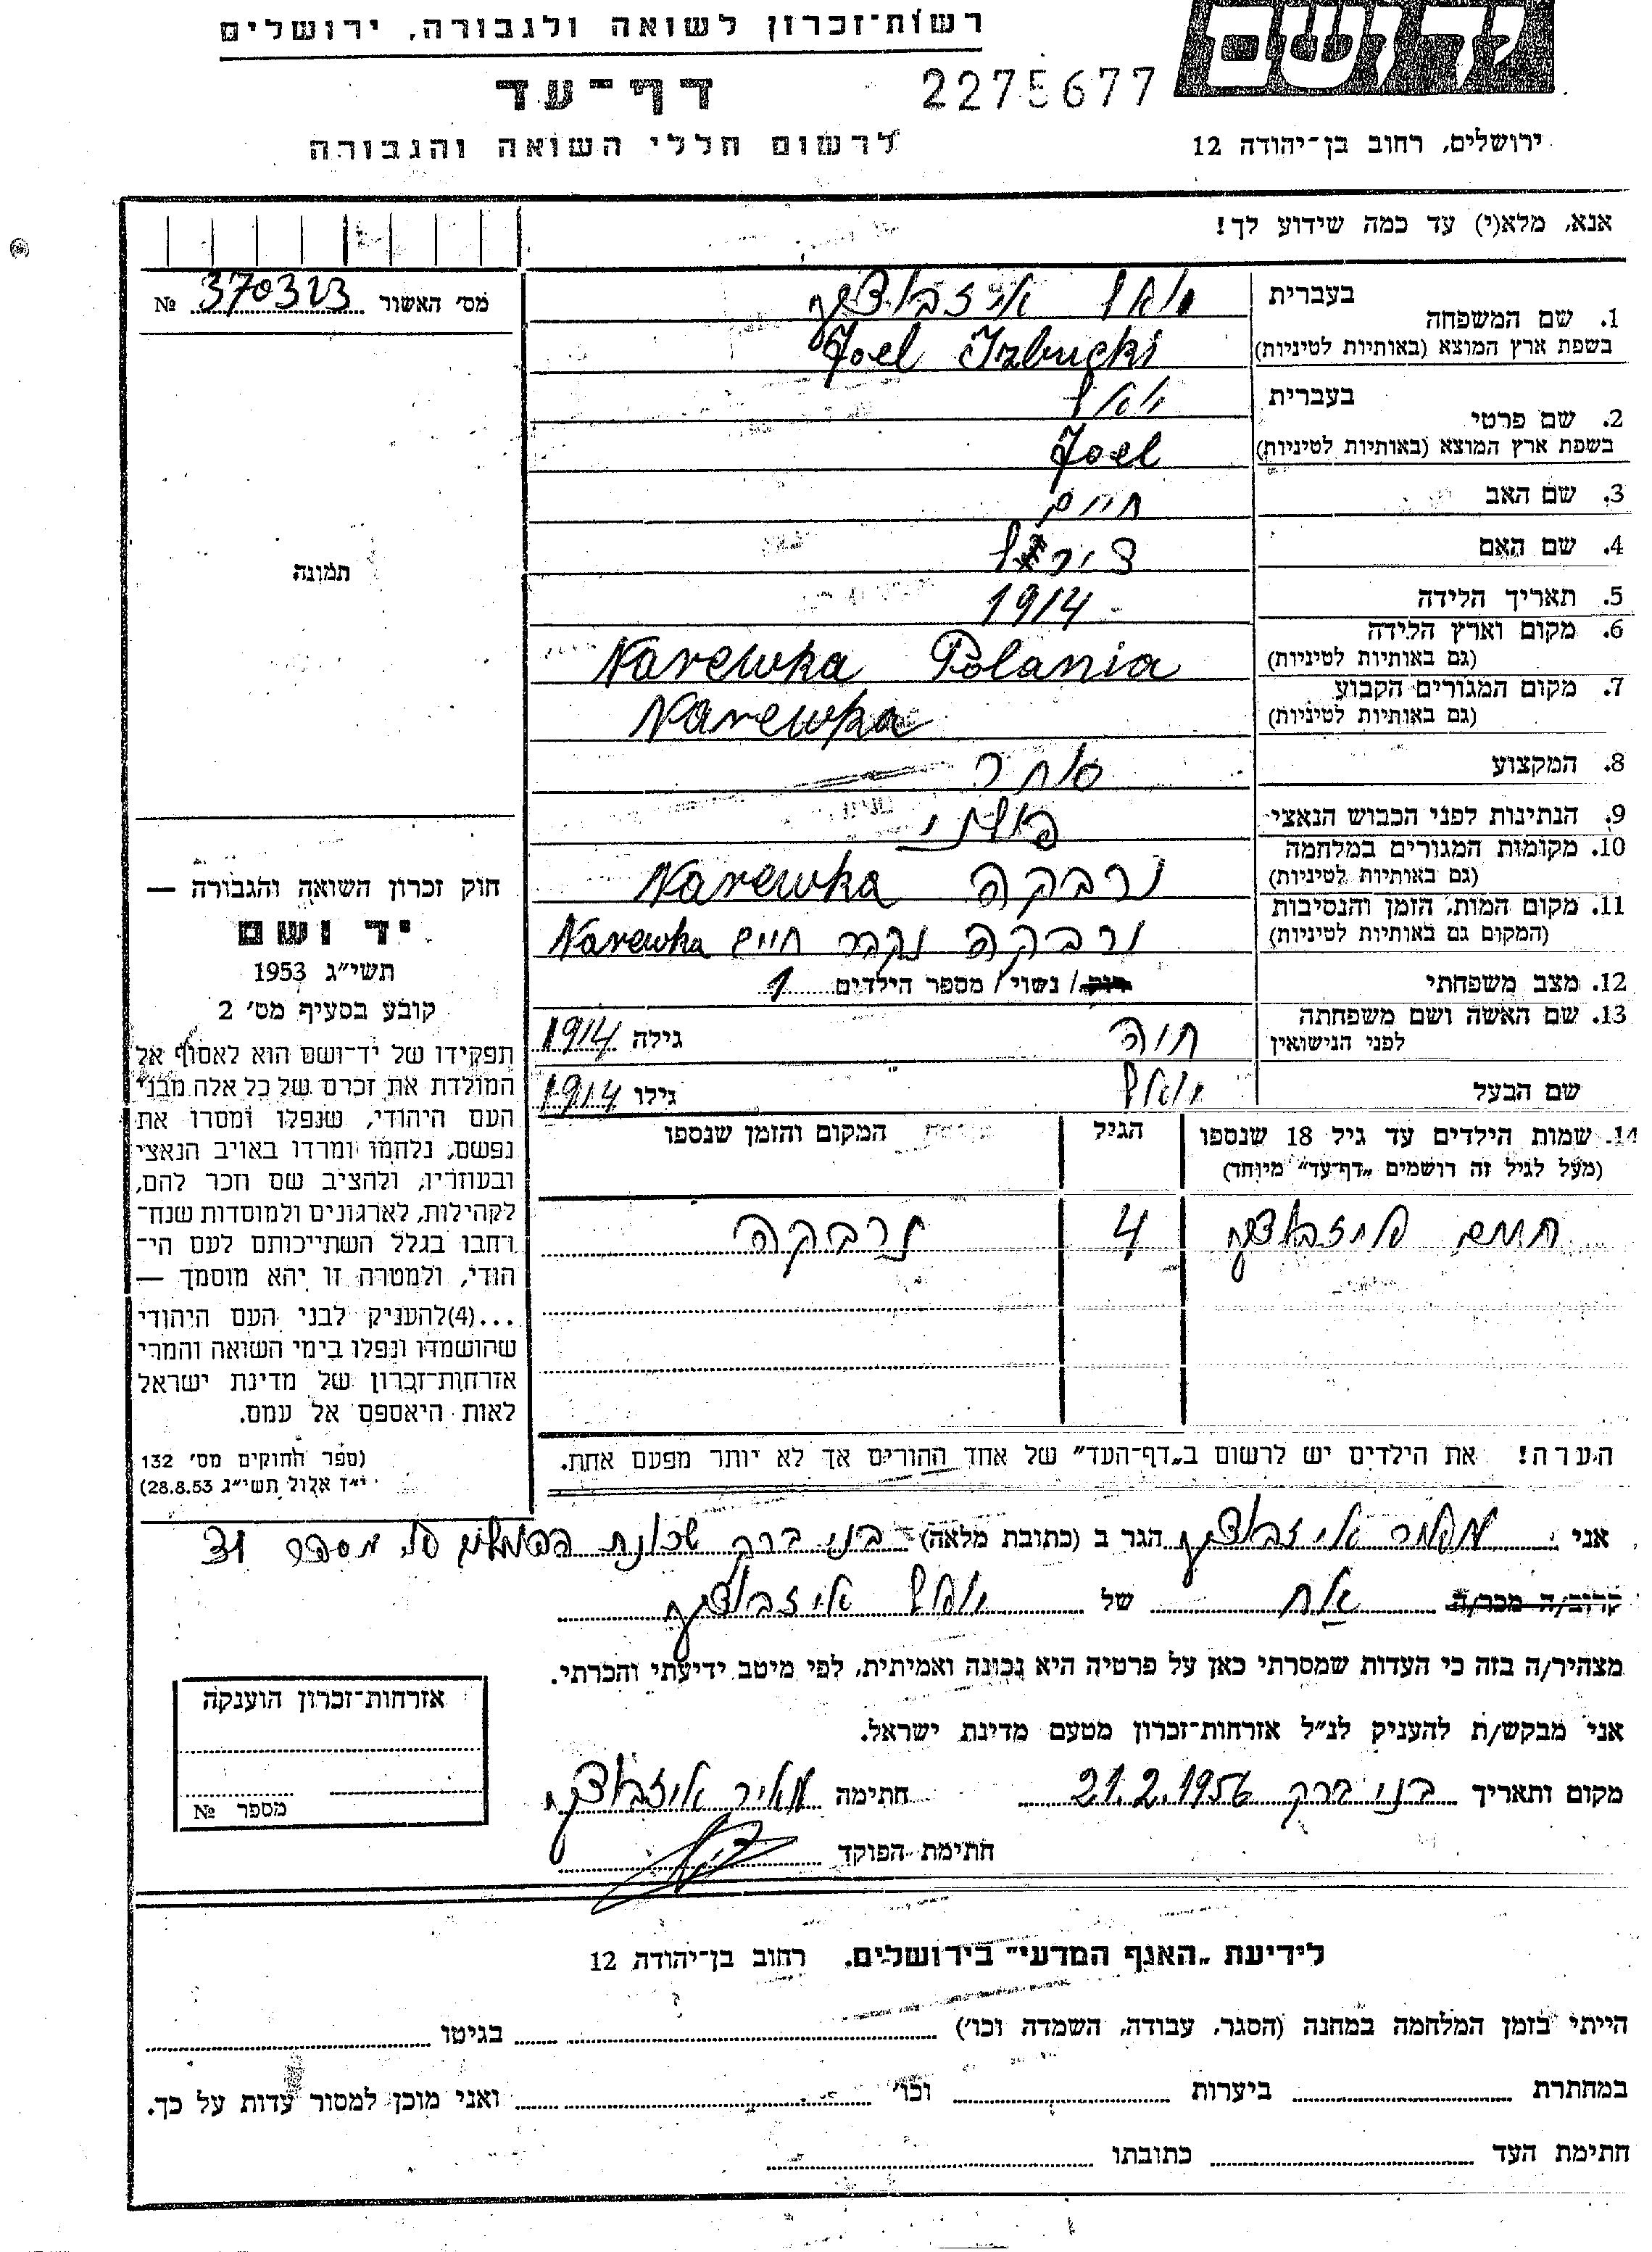 רשות־זכרון לשואה ולגבורה, ירושלים
דף־עד
2275677
ושם
לרשום חללי השואה והגבורה
ירושלים, רחוב בן־יהודה 12
אנא, מלא(י) עד כמה שידוע לך!
מס׳ האשור 370323 №
1. שם המשפחה
בעברית יואל איזבוצקי
בשפת ארץ המוצא (באותיות לטיניות) Joel Izbucki
2. שם פרטי
בעברית יואל
בשפת ארץ המוצא (באותיות לטיניות) Joel
3. שם האב חיים
4. שם האם
5. תאריך הלידה 1914
6. מקום וארץ הלידה (גם באותיות לטיניות) Narewka Polania
7. מקום המגורים הקבוע (גם באותיות לטיניות) Narewka
8. המקצוע סוחר
9. הנתינות לפני הכבוש הנאצי פולני
10. מקומות המגורים במלחמה (גם באותיות לטיניות) נרבקה Narewka
11. מקום המות, הזמן והנסיבות (המקום גם באותיות לטיניות) נרבקה נקבר חיים Narewka
12. מצב משפחתי רוק/ נשוי/ מספר הילדים 1
13. שם האשה ושם משפחתה לפני הנישואין חוה גילה 1914
שם הבעל יואל גילו 1914
14. שמות הילדים עד גיל 18 שנספו הגיל המקום והזמן שנספו
(מעל לגיל זה רושמים „דף־עד״ מיוחד)
חיים איזבוצקי 4 נרבקה
הערה! את הילדים יש לרשום ב„דף־העד״ של אחד ההורים אך לא יותר מפעם אחת.
תמונה
חוק זכרון השואה והגבורה —
יד ושם
תשי״ג 1953
קובע בסעיף מס׳ 2
תפקידו של יד־ושם הוא לאסוף אל
המולדת את זכרם של כל אלה מבני
העם היהודי, שנפלו ומסרו את
נפשם, נלחמו ומרדו באויב הנאצי
ובעוזריו, ולהציב שם וזכר להם,
לקהילות, לארגונים ולמוסדות שנח־
רחבו בגלל השתייכותם לעם הי־
הודי, ולמטרה זו יהא מוסמך —
...(4)להעניק לבני העם היהודי
שהושמדו ונפלו בימי השואה והמרי
אזרחות־זכרון של מדינת ישראל
לאות היאספם אל עמם.
(ספר החוקים מס׳ 132
י״ז אלול תשי״ג 28.8.53)
אני מאיר איזבוצקי הגר ב (כתובת מלאה) בני ברק שכונת מספר 31
קרוב/ה מכר/ה אח של יואל איזבוצקי
מצהיר/ה בזה כי העדות שמסרתי כאן על פרטיה היא נכונה ואמיתית, לפי מיטב ידיעתי והכרתי.
אני מבקש/ת להעניק לנ״ל אזרחות־זכרון מטעם מדינת ישראל.
מקום ותאריך בני ברק 21.2.1956 חתימה מאיר איזבוצקי
חתימת הפוקד
אזרחות־זכרון הוענקה
מספר №
לידיעת „האגף המדעי״ בירושלים. רחוב בן־יהודה 12
הייתי בזמן המלחמה במחנה (הסגר, עבודה, השמדה וכו׳) בגיטו
במחתרת ביערות וכו׳ ואני מוכן למסור עדות על כך.
חתימת העד כתובתו